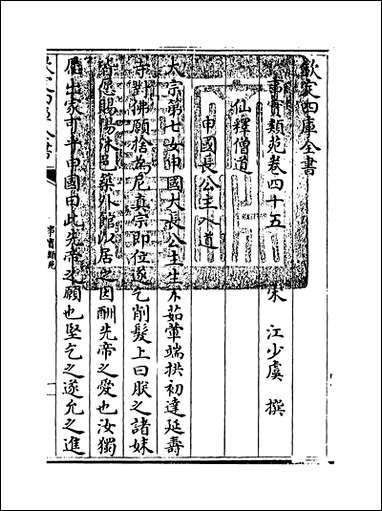 欽定四庫全書
事實類苑卷四十五
宋 江少虞 撰
仙釋僧道
申國長公主入道
太宗第七女申國大長公主生不茹葷端拱初達延壽
寺對佛願捨為尼真宗即位遂乞削髮上曰朕之諸妹
皆愿賜湯沐邑築外館以居之因酬先帝之愛也汝獨
愿出家可乎申國曰此先帝之願也堅乞之遂允之進
欽定四庫全書
事實類苑
一